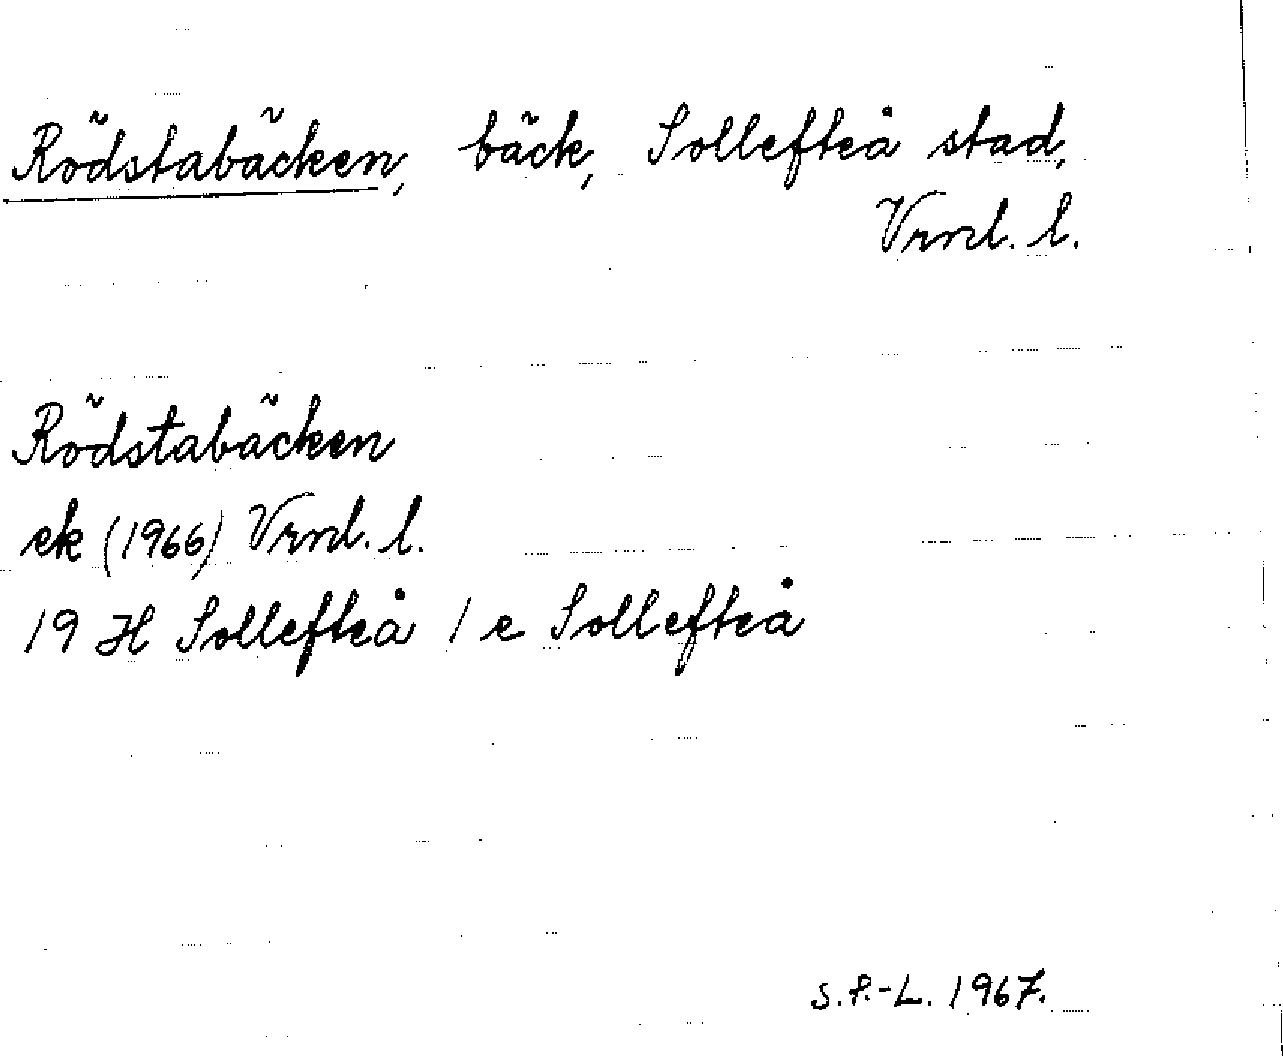 Rödstabäcken, bäck, Sollefteå stad,
Vrnl. l.
Rödstabäcken
ek (1966) Vrnl. l.
19 H Sollefteå / e Sollefteå
S.P.-L. 1967.